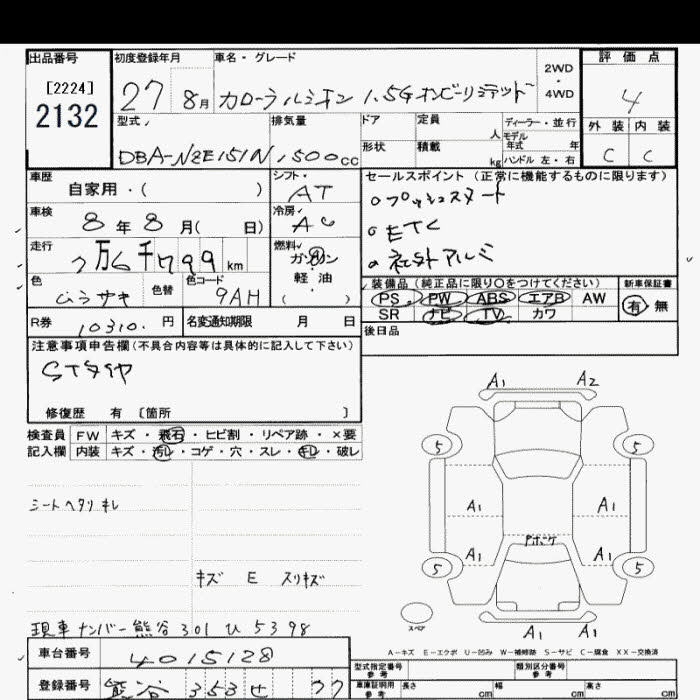 出品番号 初度登録年月 車名・グレード 2WD・4WD 評価点
[2224]
2132
27 8月 カローラルミオン 1.5G オンビーリミテッド 4
型式 排気量 ドア 定員 人 ディーラー・並行 外装 内装
形状 積載 kg モデル年式 年 ハンドル 左・右
DBA-NZE151N 1500cc C C
車歴 シフト セールスポイント(正常に機能するものに限ります)
自家用・( ) AT ○プッシュスタート
車検 冷房
8年8月( 日) AC ○ETC
走行 燃料 ○社外アルミ
2万6千799km ガソリン
色 色替 色コード 軽油 装備品(純正品に限り○をつけてください) 新車保証書
ムラサキ 9AH ( ) PS PW ABS エアB AW 有 無
R券 10310.円 名変通知期限 月 日 SR ナビ TV カワ
後日品
注意事項申告欄(不具合内容等は具体的に記入して下さい)
修復歴 有 〔箇所 〕
検査員 FW キズ・飛石・ヒビ割・リペア跡・×要
記入欄 内装 キズ・汚レ・コゲ・穴・スレ・キレ・破レ
A1 A2
5 5
シートヘタリ キレ
A1 A1
Pボーケ
A1 A1
5 5
キズ E スリキズ
スペア
A1 A1
現車ナンバー熊谷301 ひ 5398
A-キズ E-エクボ U-凹み W-補修跡 S-サビ C-腐食 XX-交換済
車台番号 4015128
型式指定番号 参考 類別区分番号 参考
登録番号 熊谷 353 せ 77
車庫証明用 参考 長さ cm 幅 cm 高さ cm